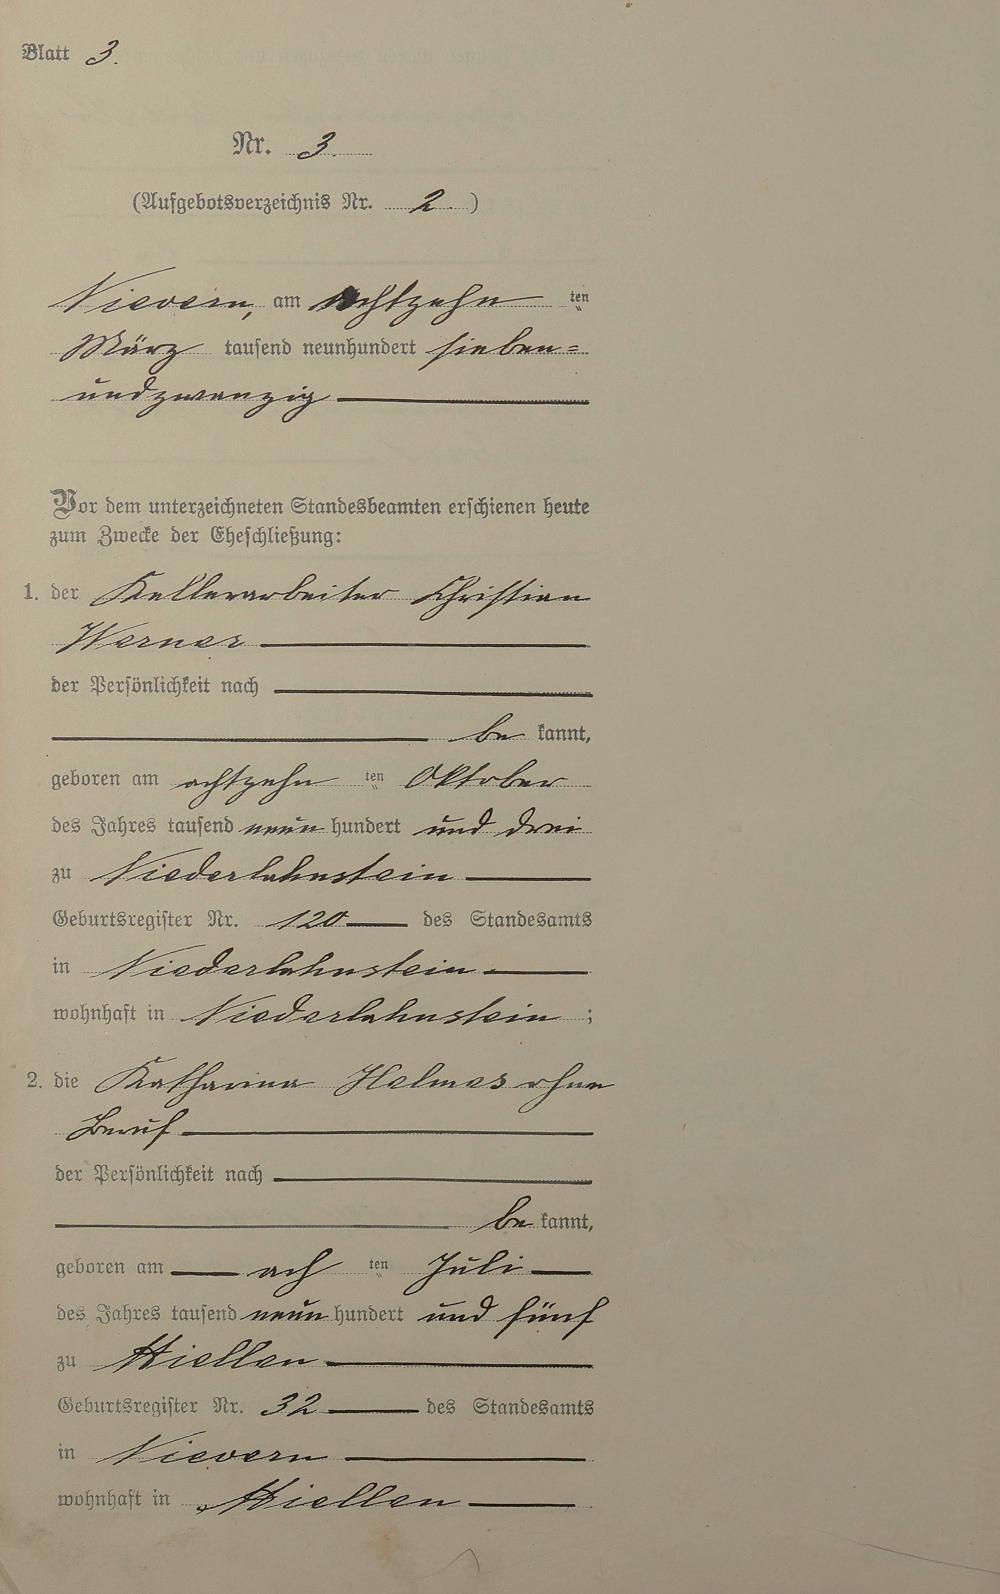 Blatt 3.
Nr. 3.
(Aufgebotsverzeichnis Nr. 2.)
Nievern, am achtzehn ten
März tausend neunhundert sieben=
undzwanzig
Vor dem unterzeichneten Standesbeamten erschienen heute
zum Zwecke der Eheschließung:
1. der Kellerarbeiter Christian
Werner
der Persönlichkeit nach
be kannt,
geboren am achtzehn ten Oktober
des Jahres tausend neun hundert und drei
zu Niederlahnstein
Geburtsregister Nr. 120 des Standesamts
in Niederlahnstein
wohnhaft in Niederlahnstein ;
2. die Katharina Helmes ohne
Beruf
der Persönlichkeit nach
be kannt,
geboren am ach ten Juli
des Jahres tausend neun hundert und fünf
zu Miellen
Geburtsregister Nr. 32 des Standesamts
in Nievern
wohnhaft in Miellen